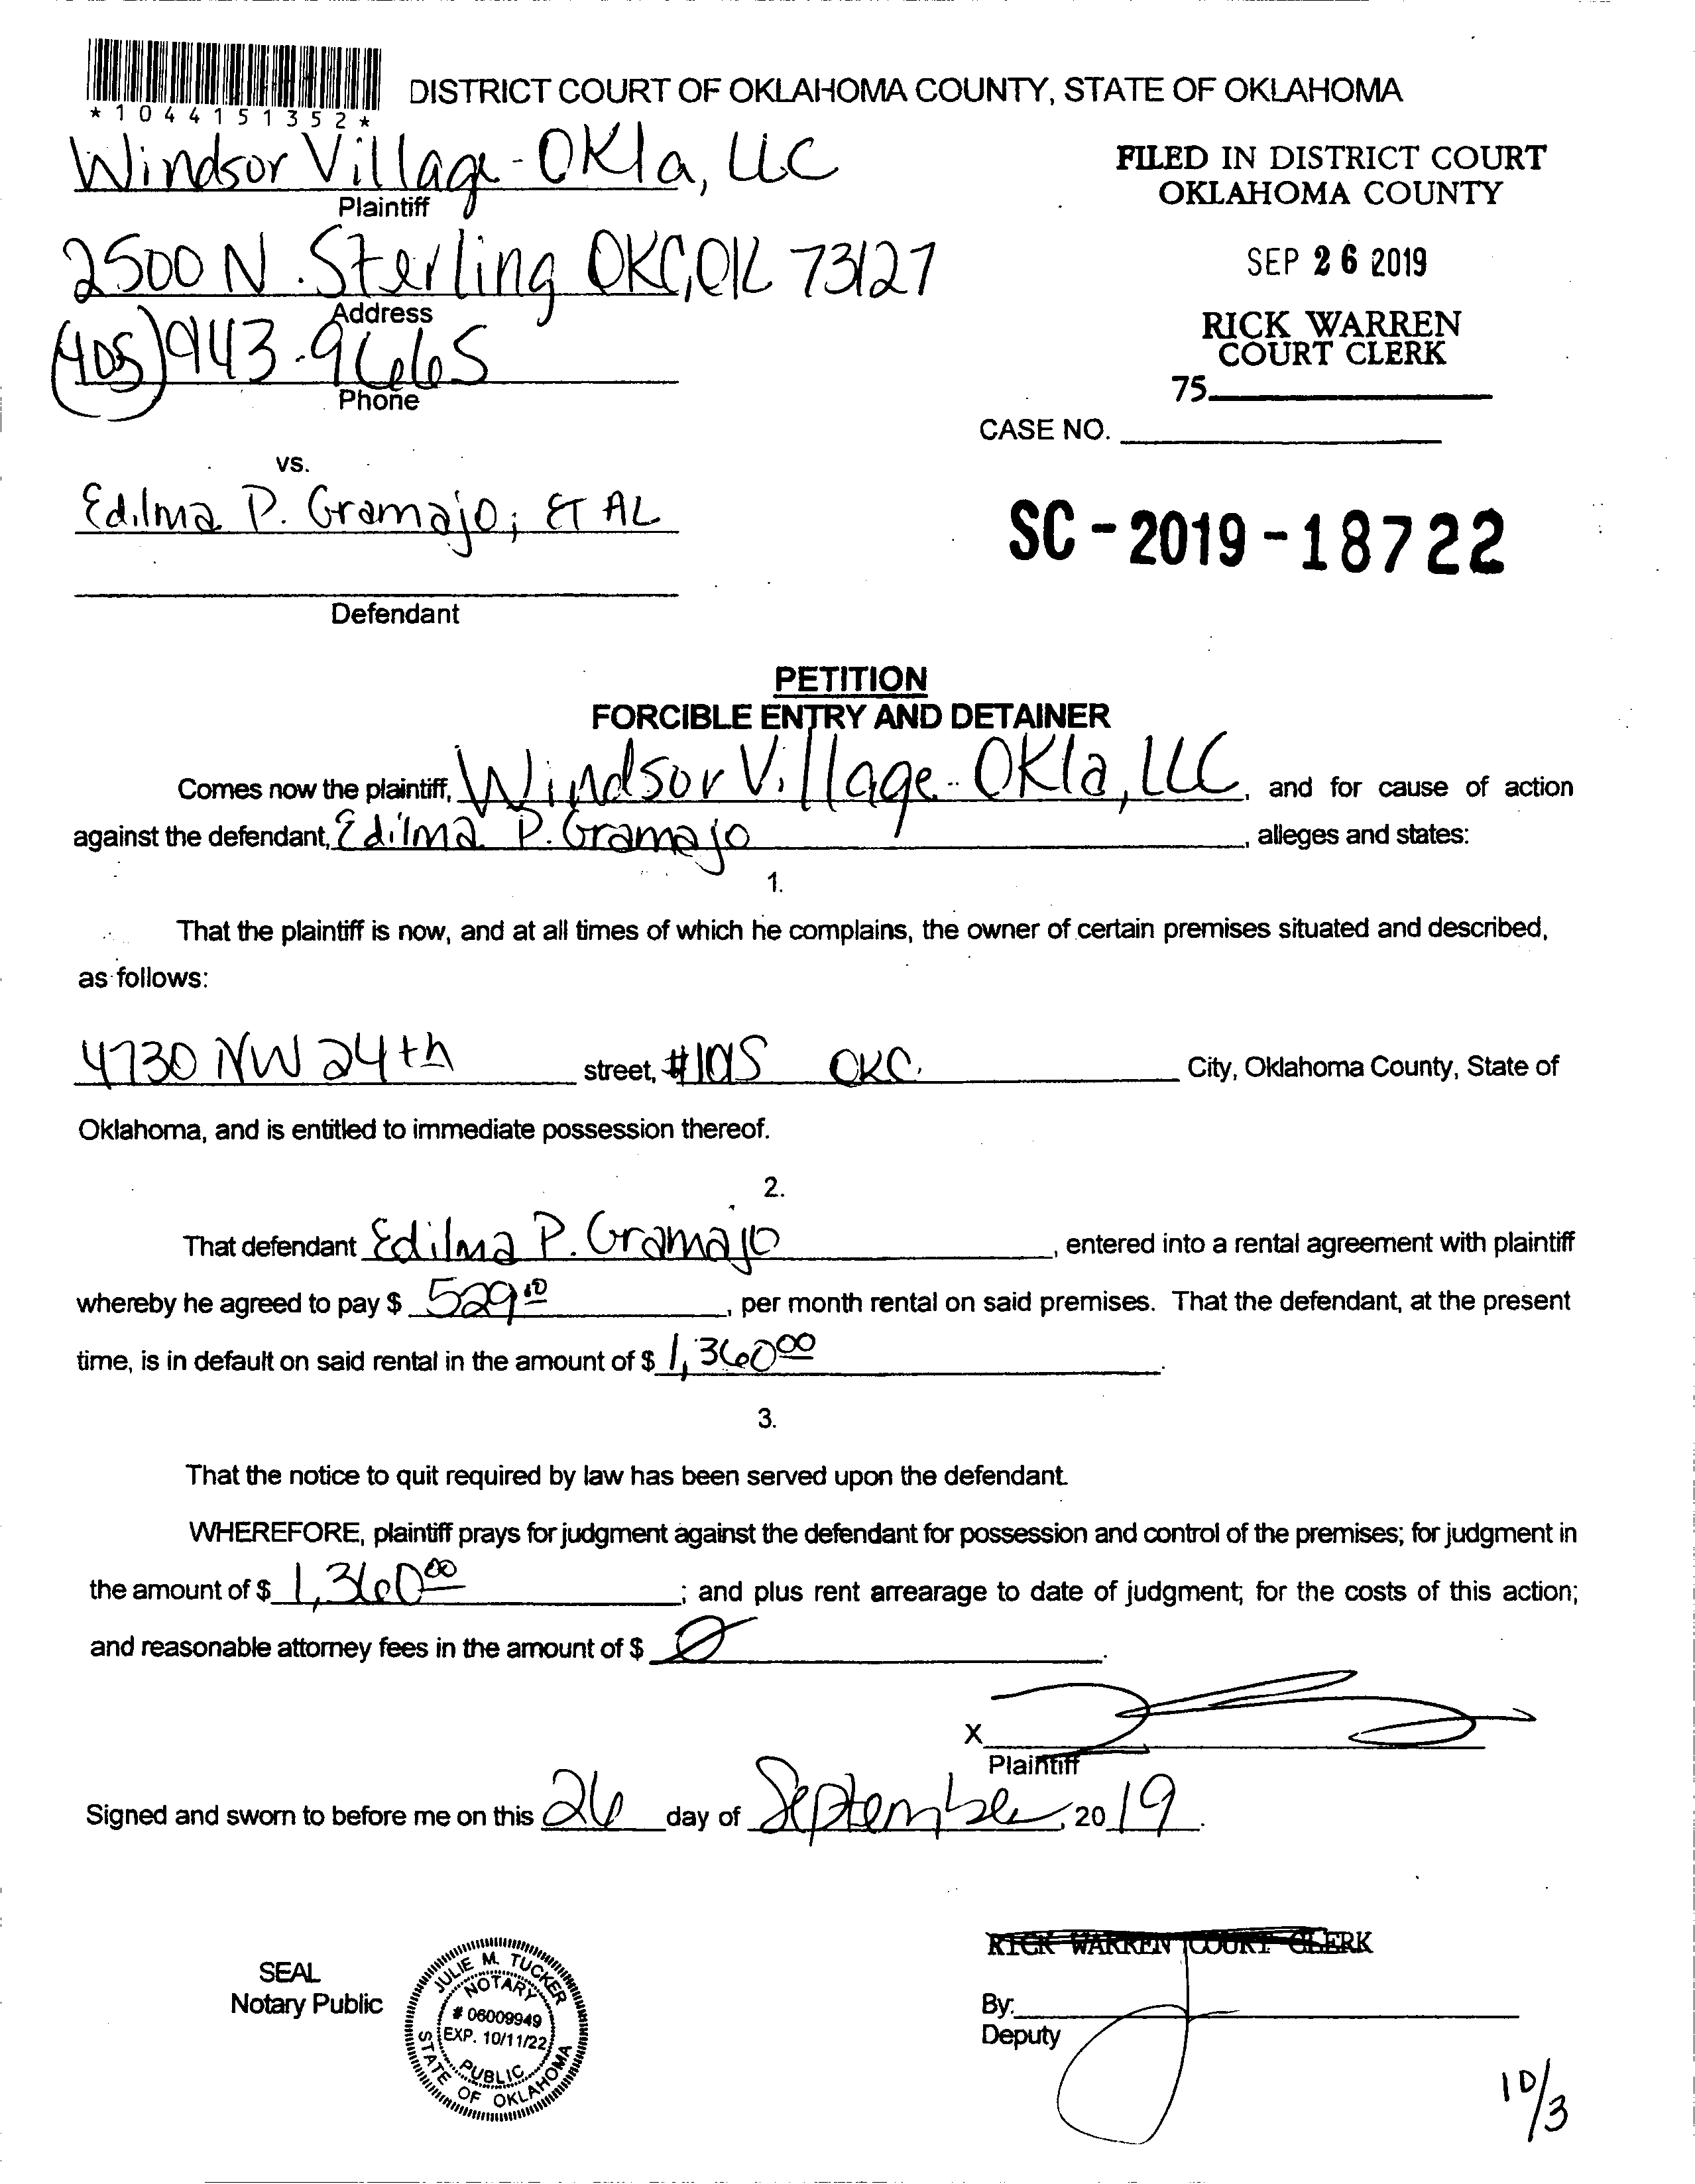 *1044151352*
DISTRICT COURT OF OKLAHOMA COUNTY, STATE OF OKLAHOMA
Windsor Village-Okla, LLC
Plaintiff
FILED IN DISTRICT COURT
OKLAHOMA COUNTY
2500 N. Sterling OKC, OK 73127
Address
SEP 26 2019
(405) 943-9665
Phone
RICK WARREN
COURT CLERK
75
CASE NO.
vs.
Edilma P. Gramajo; ET AL
SC-2019-18722
Defendant
PETITION
FORCIBLE ENTRY AND DETAINER
Comes now the plaintiff, Windsor Village-Okla, LLC, and for cause of action
against the defendant, Edilma P. Gramajo, alleges and states:
1.
That the plaintiff is now, and at all times of which he complains, the owner of certain premises situated and described,
as follows:
4730 NW 24th street, #105 OKC. City, Oklahoma County, State of
Oklahoma, and is entitled to immediate possession thereof.
2.
That defendant Edilma P. Gramajo, entered into a rental agreement with plaintiff
whereby he agreed to pay $ 529, per month rental on said premises. That the defendant, at the present
time, is in default on said rental in the amount of $ 1,360.00.
3.
That the notice to quit required by law has been served upon the defendant.
WHEREFORE, plaintiff prays for judgment against the defendant for possession and control of the premises; for judgment in
the amount of $ 1,360.00; and plus rent arrearage to date of judgment; for the costs of this action;
and reasonable attorney fees in the amount of $ 0.
X
Plaintiff
Signed and sworn to before me on this 26 day of September, 2019.
RICK WARREN COURT CLERK
SEAL
Notary Public
JULIE M. TUCKER
NOTARY
# 06009949
EXP. 10/11/22
PUBLIC
STATE OF OKLAHOMA
By:
Deputy
10/3